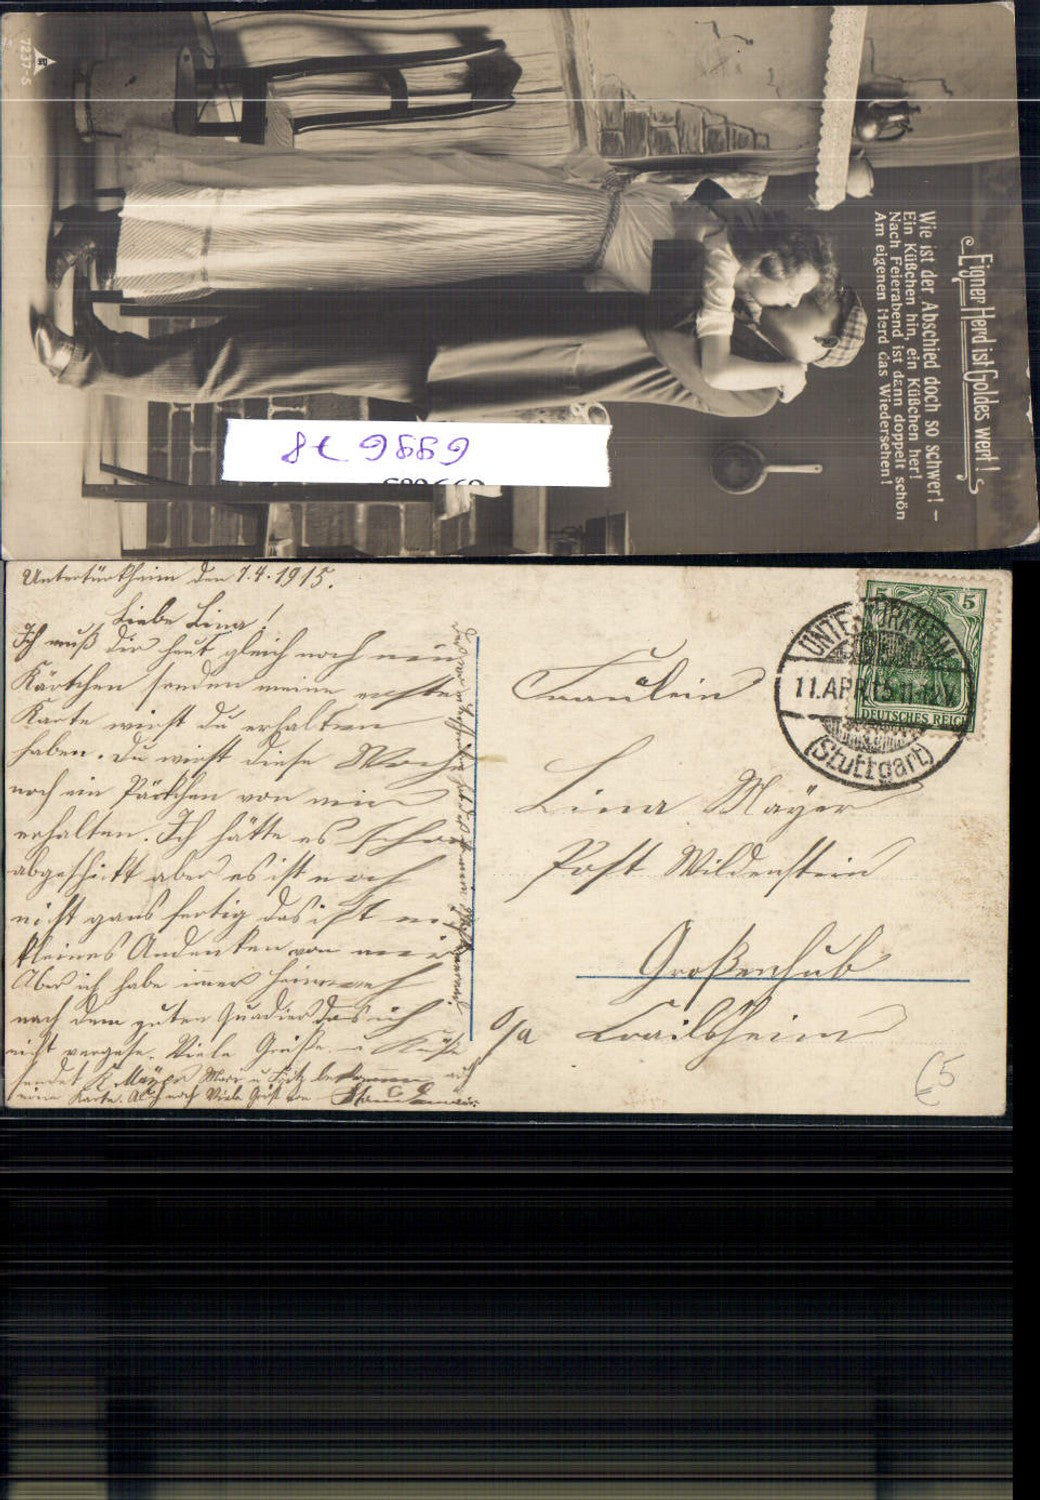 Eigner Herd ist Goldes wert!
Wie ist der Abschied doch so schwer! –
Ein Küßchen hin, ein Küßchen her!
Nach Feierabend ist dann doppelt schön
Am eigenen Herd das Wiedersehen!
7237-5
699678
Untertürkheim den 7.4.1915.
Liebe Lina!
Ich muß dir heut gleich noch ein
Kärtchen senden meine erste
Karte wirst du erhalten
haben. Du wirst diese Woche
noch ein Päckchen von mir
erhalten. Ich hätte es schon
abgeschickt aber es ist noch
nicht ganz fertig das ist ein
kleines Andenken von mir
Aber ich habe immer Heimweh
nach dem guten Quadier das ich
nicht vergesse. Viele Grüße u Küße
sendet K. Mayer
eine Karte. Auch noch Viele Grüße von
Fräulein
Lina Mayer
Post Wildenstein
Großenhub
O/a Crailsheim
UNTERTÜRKHEIM
11.APR.15 11-12V
(Stuttgart)
5 5
DEUTSCHES REICH
65